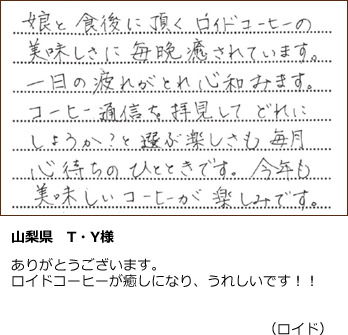 娘と食後に頂くロイドコーヒーの
美味しさに毎晩癒されています。
一日の疲れがとれ心和みます。
コーヒー通信を拝見してどれに
しようか?と選ぶ楽しさも毎月
心待ちのひとときです。今年も
美味しいコーヒーが楽しみです。
山梨県　T・Y様
ありがとうございます。
ロイドコーヒーが癒しになり、うれしいです！！
（ロイド）